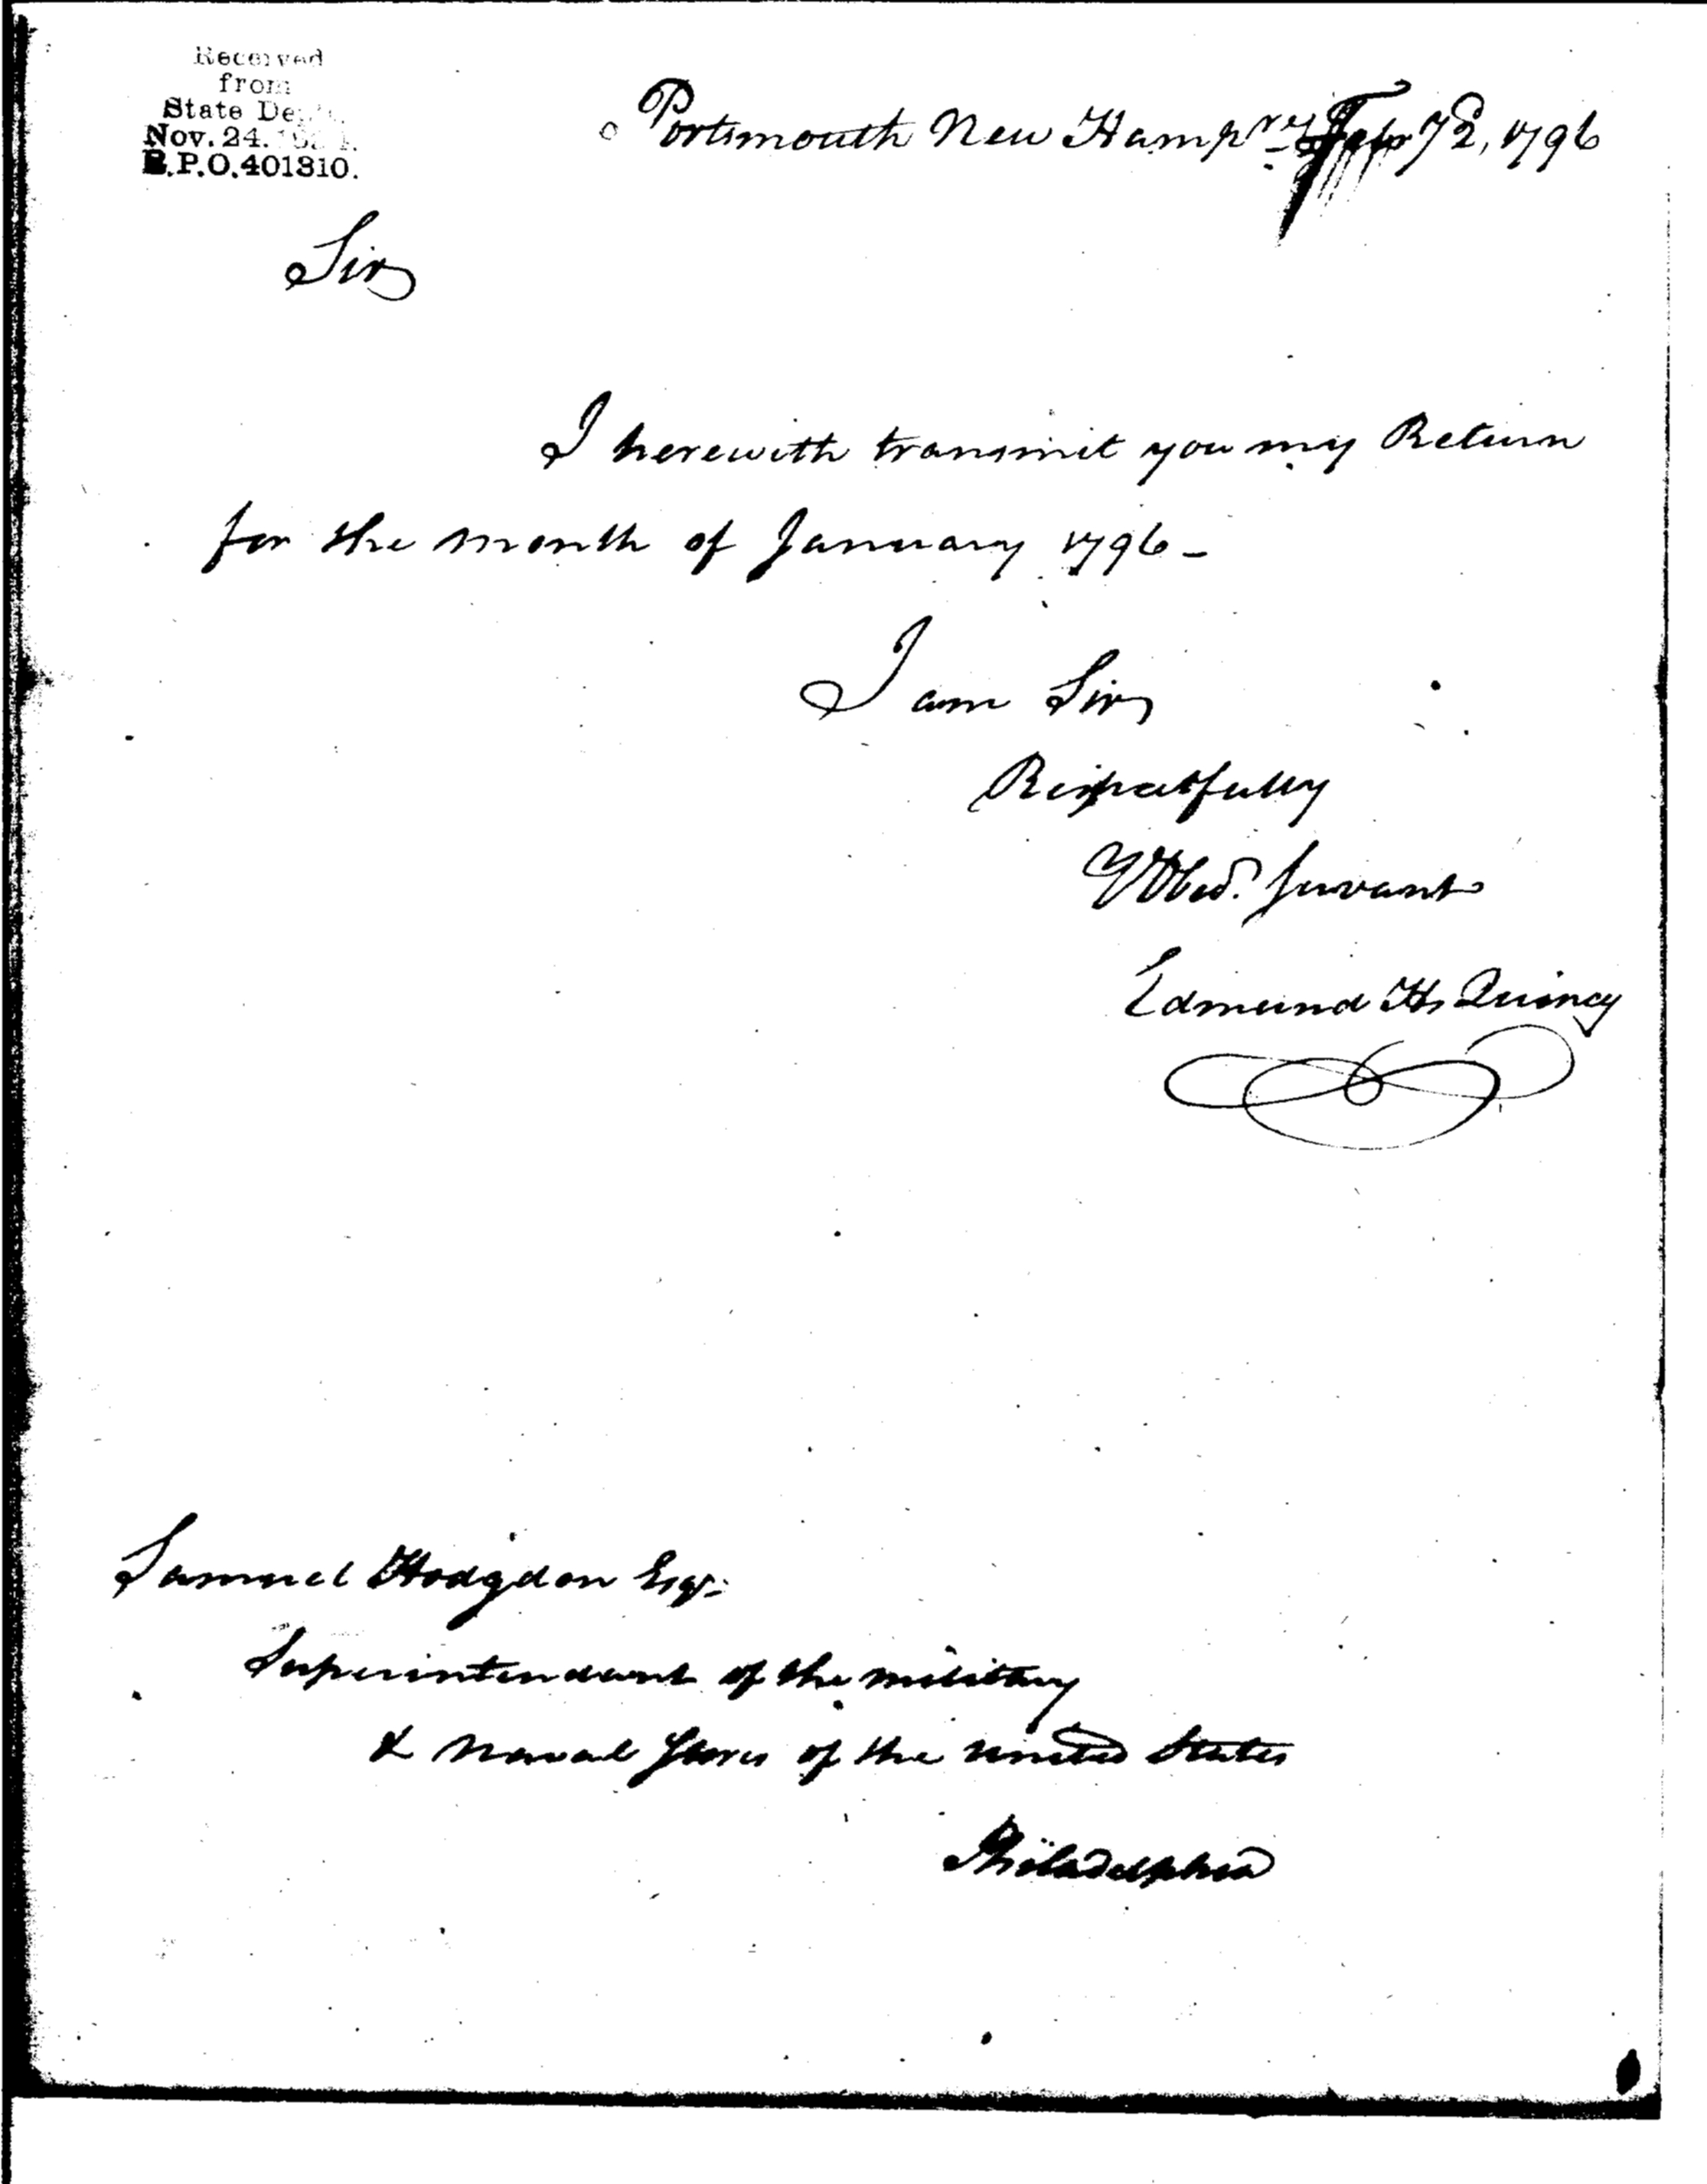 Received
from
State Dept.
Nov. 24.
R.P.O. 401310.
Portsmouth New Hampr Feby 2, 1796
Sir
I herewith transmit you my Return
for the month of January 1796-
I am Sir
Respectfully
Y Obed. Servant
Edmund H. Quincy
Samuel Hodgdon Esqr.
Superintendant of the military
& Naval Stores of the United States
Philadelphia